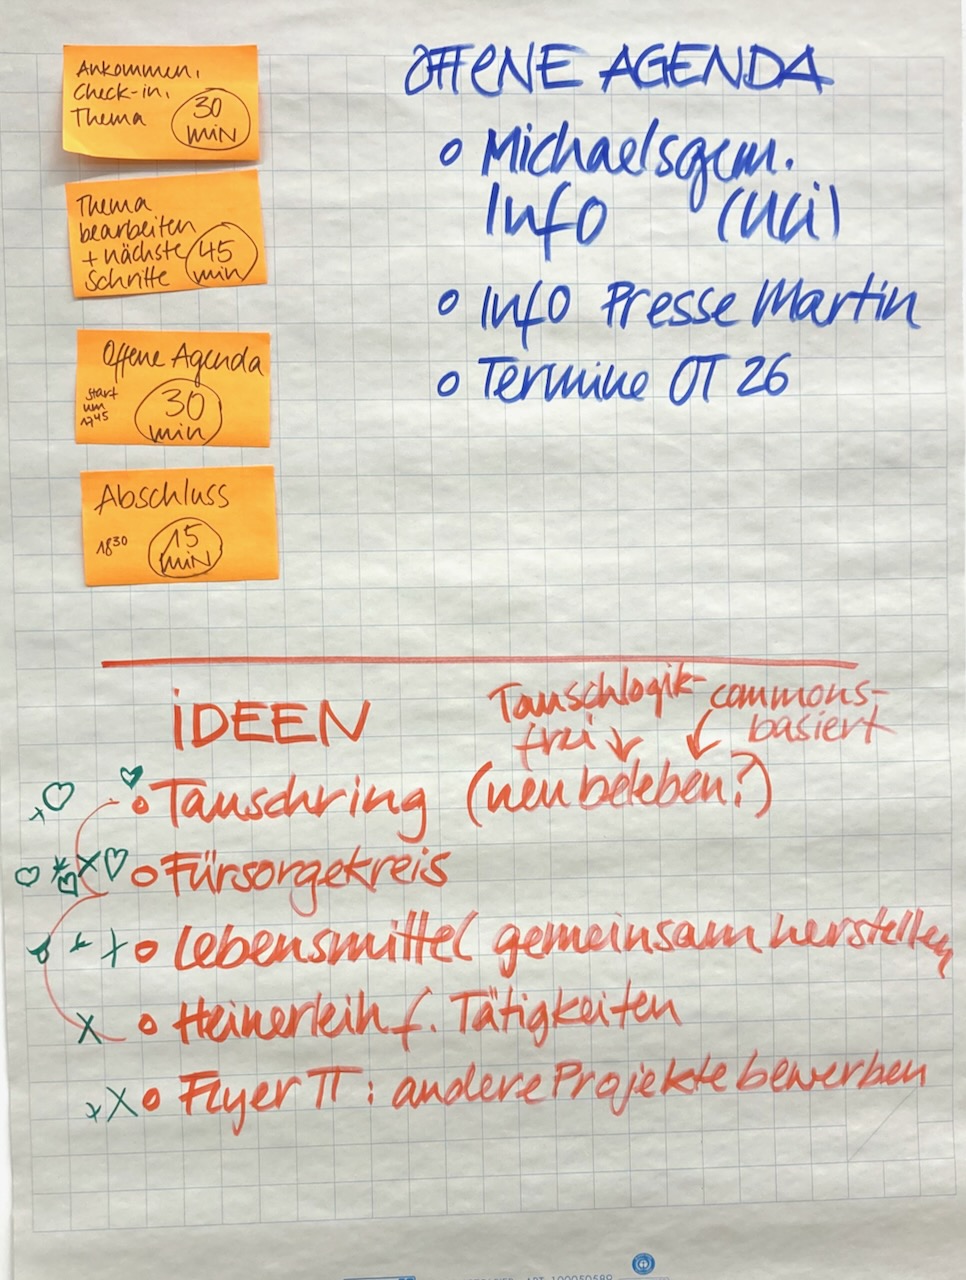 Ankommen,
Check-in,
Thema
30
min
Thema
bearbeiten
+ nächste
Schritte
45
min
Offene Agenda
Start
um
17⁴⁵
30
min
Abschluss
18³⁰
15
min
OFFENE AGENDA
Michaelsgem.
Info (Uli)
Info Presse Martin
Termine OT 26
IDEEN
Tauschlogik-
frei
commons-
basiert
Tauschring (neu beleben?)
Fürsorgekreis
Lebensmittel gemeinsam herstellen
Heinerleih f. Tätigkeiten
Flyer TT: andere Projekte bewerben